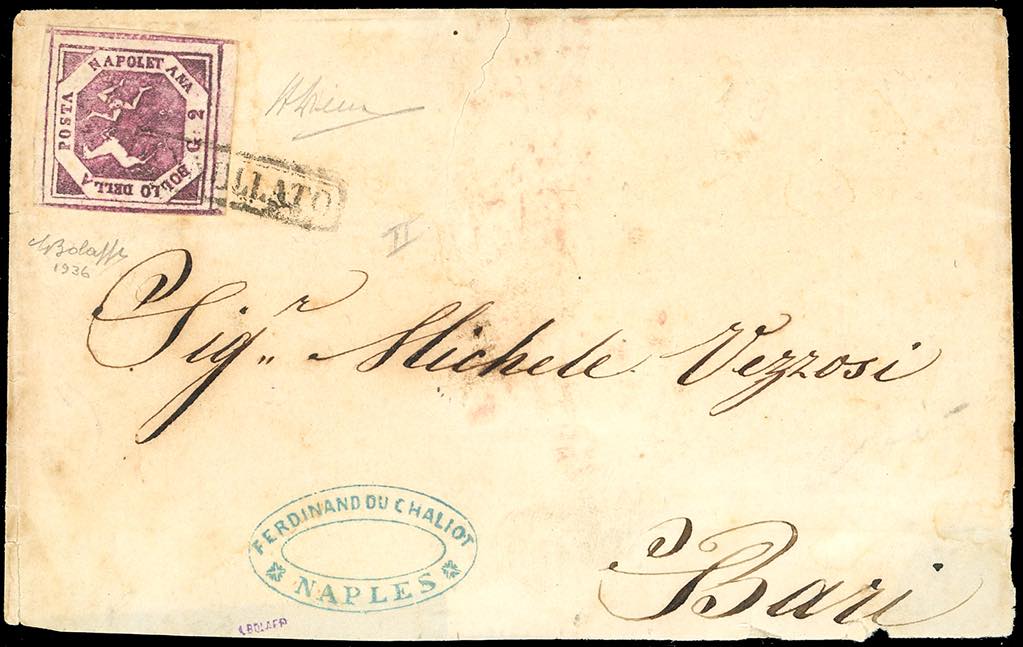 BOLLO DELLA
POSTA
NAPOLETANA
G. 2
LLATO
Bolaffi
1936
II
Sig.r Michele Vezzosi
FERDINAND DU CHALIOT
NAPLES
Bari